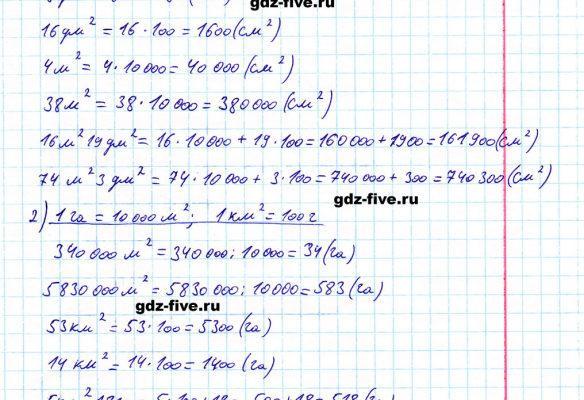 gdz-five.ru
16дм² = 16·100 = 1600(см²)
4м² = 4·10000 = 40 000 (см²)
38м² = 38·10 000 = 380000 (см²)
16м² 19дм² = 16·10000 + 19·100 = 160000 + 1900 = 161900(см²)
74 м² 3 дм² = 74·10000 + 3·100 = 740000 + 300 = 740 300 (см²)
gdz-five.ru
2) 1 га = 10000 м²; 1 км² = 100 г
340 000 м² = 340000 : 10000 = 34(га)
5830 000 м² = 5830 000 : 10000 = 583 (га)
gdz-five.ru
53км² = 53·100 = 5300 (га)
14 км² = 14·100 = 1400 (га)